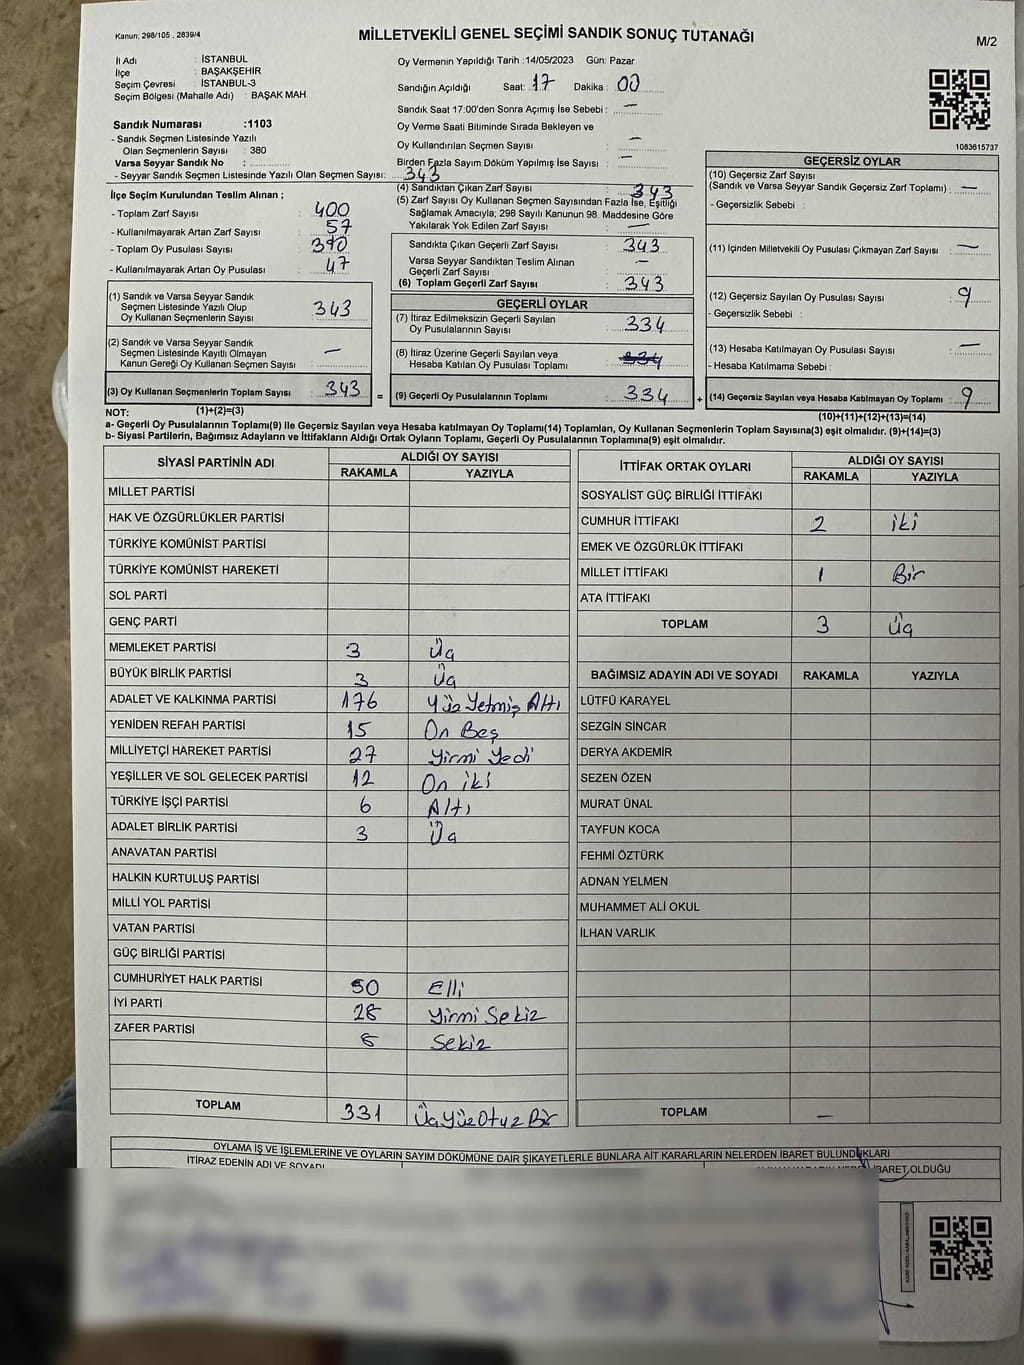 Kanun; 298/105 , 2839/4
MİLLETVEKİLİ GENEL SEÇİMİ SANDIK SONUÇ TUTANAĞI
M/2
İl Adı : İSTANBUL
İlçe : BAŞAKŞEHİR
Seçim Çevresi : İSTANBUL-3
Seçim Bölgesi (Mahalle Adı) : BAŞAK MAH.
Oy Vermenin Yapıldığı Tarih :14/05/2023 Gün: Pazar
Sandığın Açıldığı Saat: 17 Dakika : 00
Sandık Saat 17:00'den Sonra Açımış İse Sebebi : —
Oy Verme Saati Bitiminde Sırada Bekleyen ve
Oy Kullandırılan Seçmen Sayısı : —
Birden Fazla Sayım Döküm Yapılmış İse Sayısı : —
1083615737
Sandık Numarası :1103
- Sandık Seçmen Listesinde Yazılı
Olan Seçmenlerin Sayısı : 380
Varsa Seyyar Sandık No :
- Seyyar Sandık Seçmen Listesinde Yazılı Olan Seçmen Sayısı: 343
İlçe Seçim Kurulundan Teslim Alınan ;
- Toplam Zarf Sayısı : 400
- Kullanılmayarak Artan Zarf Sayısı : 57
- Toplam Oy Pusulası Sayısı : 390
- Kullanılmayarak Artan Oy Pusulası : 47
(1) Sandık ve Varsa Seyyar Sandık
Seçmen Listesinde Yazılı Olup
Oy Kullanan Seçmenlerin Sayısı : 343
(2) Sandık ve Varsa Seyyar Sandık
Seçmen Listesinde Kayıtlı Olmayan
Kanun Gereği Oy Kullanan Seçmen Sayısı : —
(3) Oy Kullanan Seçmenlerin Toplam Sayısı : 343 =
(4) Sandıktan Çıkan Zarf Sayısı : 343
(5) Zarf Sayısı Oy Kullanan Seçmen Sayısından Fazla İse, Eşitliği
Sağlamak Amacıyla; 298 Sayılı Kanunun 98. Maddesine Göre
Yakılarak Yok Edilen Zarf Sayısı : —
Sandıkta Çıkan Geçerli Zarf Sayısı : 343
Varsa Seyyar Sandıktan Teslim Alınan
Geçerli Zarf Sayısı : —
(6) Toplam Geçerli Zarf Sayısı : 343
GEÇERLİ OYLAR
(7) İtiraz Edilmeksizin Geçerli Sayılan
Oy Pusulalarının Sayısı : 334
(8) İtiraz Üzerine Geçerli Sayılan veya
Hesaba Katılan Oy Pusulası Toplamı : 334
(9) Geçerli Oy Pusulalarının Toplamı : 334 +
GEÇERSİZ OYLAR
(10) Geçersiz Zarf Sayısı
(Sandık ve Varsa Seyyar Sandık Geçersiz Zarf Toplamı) : —
- Geçersizlik Sebebi :
(11) İçinden Milletvekili Oy Pusulası Çıkmayan Zarf Sayısı : —
(12) Geçersiz Sayılan Oy Pusulası Sayısı : 9
- Geçersizlik Sebebi :
(13) Hesaba Katılmayan Oy Pusulası Sayısı : —
- Hesaba Katılmama Sebebi :
(14) Geçersiz Sayılan veya Hesaba Katılmayan Oy Toplamı : 9
NOT: (1)+(2)=(3) (10)+(11)+(12)+(13)=(14)
a- Geçerli Oy Pusulalarının Toplamı(9) ile Geçersiz Sayılan veya Hesaba katılmayan Oy Toplamı(14) Toplamları, Oy Kullanan Seçmenlerin Toplam Sayısına(3) eşit olmalıdır. (9)+(14)=(3)
b- Siyasi Partilerin, Bağımsız Adayların ve İttifakların Aldığı Ortak Oyların Toplamı, Geçerli Oy Pusulalarının Toplamına(9) eşit olmalıdır.
SİYASİ PARTİNİN ADI ALDIĞI OY SAYISI
RAKAMLA YAZIYLA
MİLLET PARTİSİ
HAK VE ÖZGÜRLÜKLER PARTİSİ
TÜRKİYE KOMÜNİST PARTİSİ
TÜRKİYE KOMÜNİST HAREKETİ
SOL PARTİ
GENÇ PARTİ
MEMLEKET PARTİSİ 3 Üç
BÜYÜK BİRLİK PARTİSİ 3 Üç
ADALET VE KALKINMA PARTİSİ 176 Yüz Yetmiş Altı
YENİDEN REFAH PARTİSİ 15 On Beş
MİLLİYETÇİ HAREKET PARTİSİ 27 Yirmi Yedi
YEŞİLLER VE SOL GELECEK PARTİSİ 12 On iki
TÜRKİYE İŞÇİ PARTİSİ 6 Altı
ADALET BİRLİK PARTİSİ 3 Üç
ANAVATAN PARTİSİ
HALKIN KURTULUŞ PARTİSİ
MİLLİ YOL PARTİSİ
VATAN PARTİSİ
GÜÇ BİRLİĞİ PARTİSİ
CUMHURİYET HALK PARTİSİ 50 Elli
İYİ PARTİ 28 Yirmi Sekiz
ZAFER PARTİSİ 8 Sekiz
TOPLAM 331 ÜçYüzOtuz Bir
İTTİFAK ORTAK OYLARI ALDIĞI OY SAYISI
RAKAMLA YAZIYLA
SOSYALİST GÜÇ BİRLİĞİ İTTİFAKI
CUMHUR İTTİFAKI 2 iki
EMEK VE ÖZGÜRLÜK İTTİFAKI
MİLLET İTTİFAKI 1 Bir
ATA İTTİFAKI
TOPLAM 3 Üç
BAĞIMSIZ ADAYIN ADI VE SOYADI RAKAMLA YAZIYLA
LÜTFÜ KARAYEL
SEZGİN SİNCAR
DERYA AKDEMİR
SEZEN ÖZEN
MURAT ÜNAL
TAYFUN KOCA
FEHMİ ÖZTÜRK
ADNAN YELMEN
MUHAMMET ALİ OKUL
İLHAN VARLIK
TOPLAM —
OYLAMA İŞ VE İŞLEMLERİNE VE OYLARIN SAYIM DÖKÜMÜNE DAİR ŞİKAYETLERLE BUNLARA AİT KARARLARIN NELERDEN İBARET BULUNDUKLARI
İTİRAZ EDENİN ADI VE SOYADI İBARET OLDUĞU